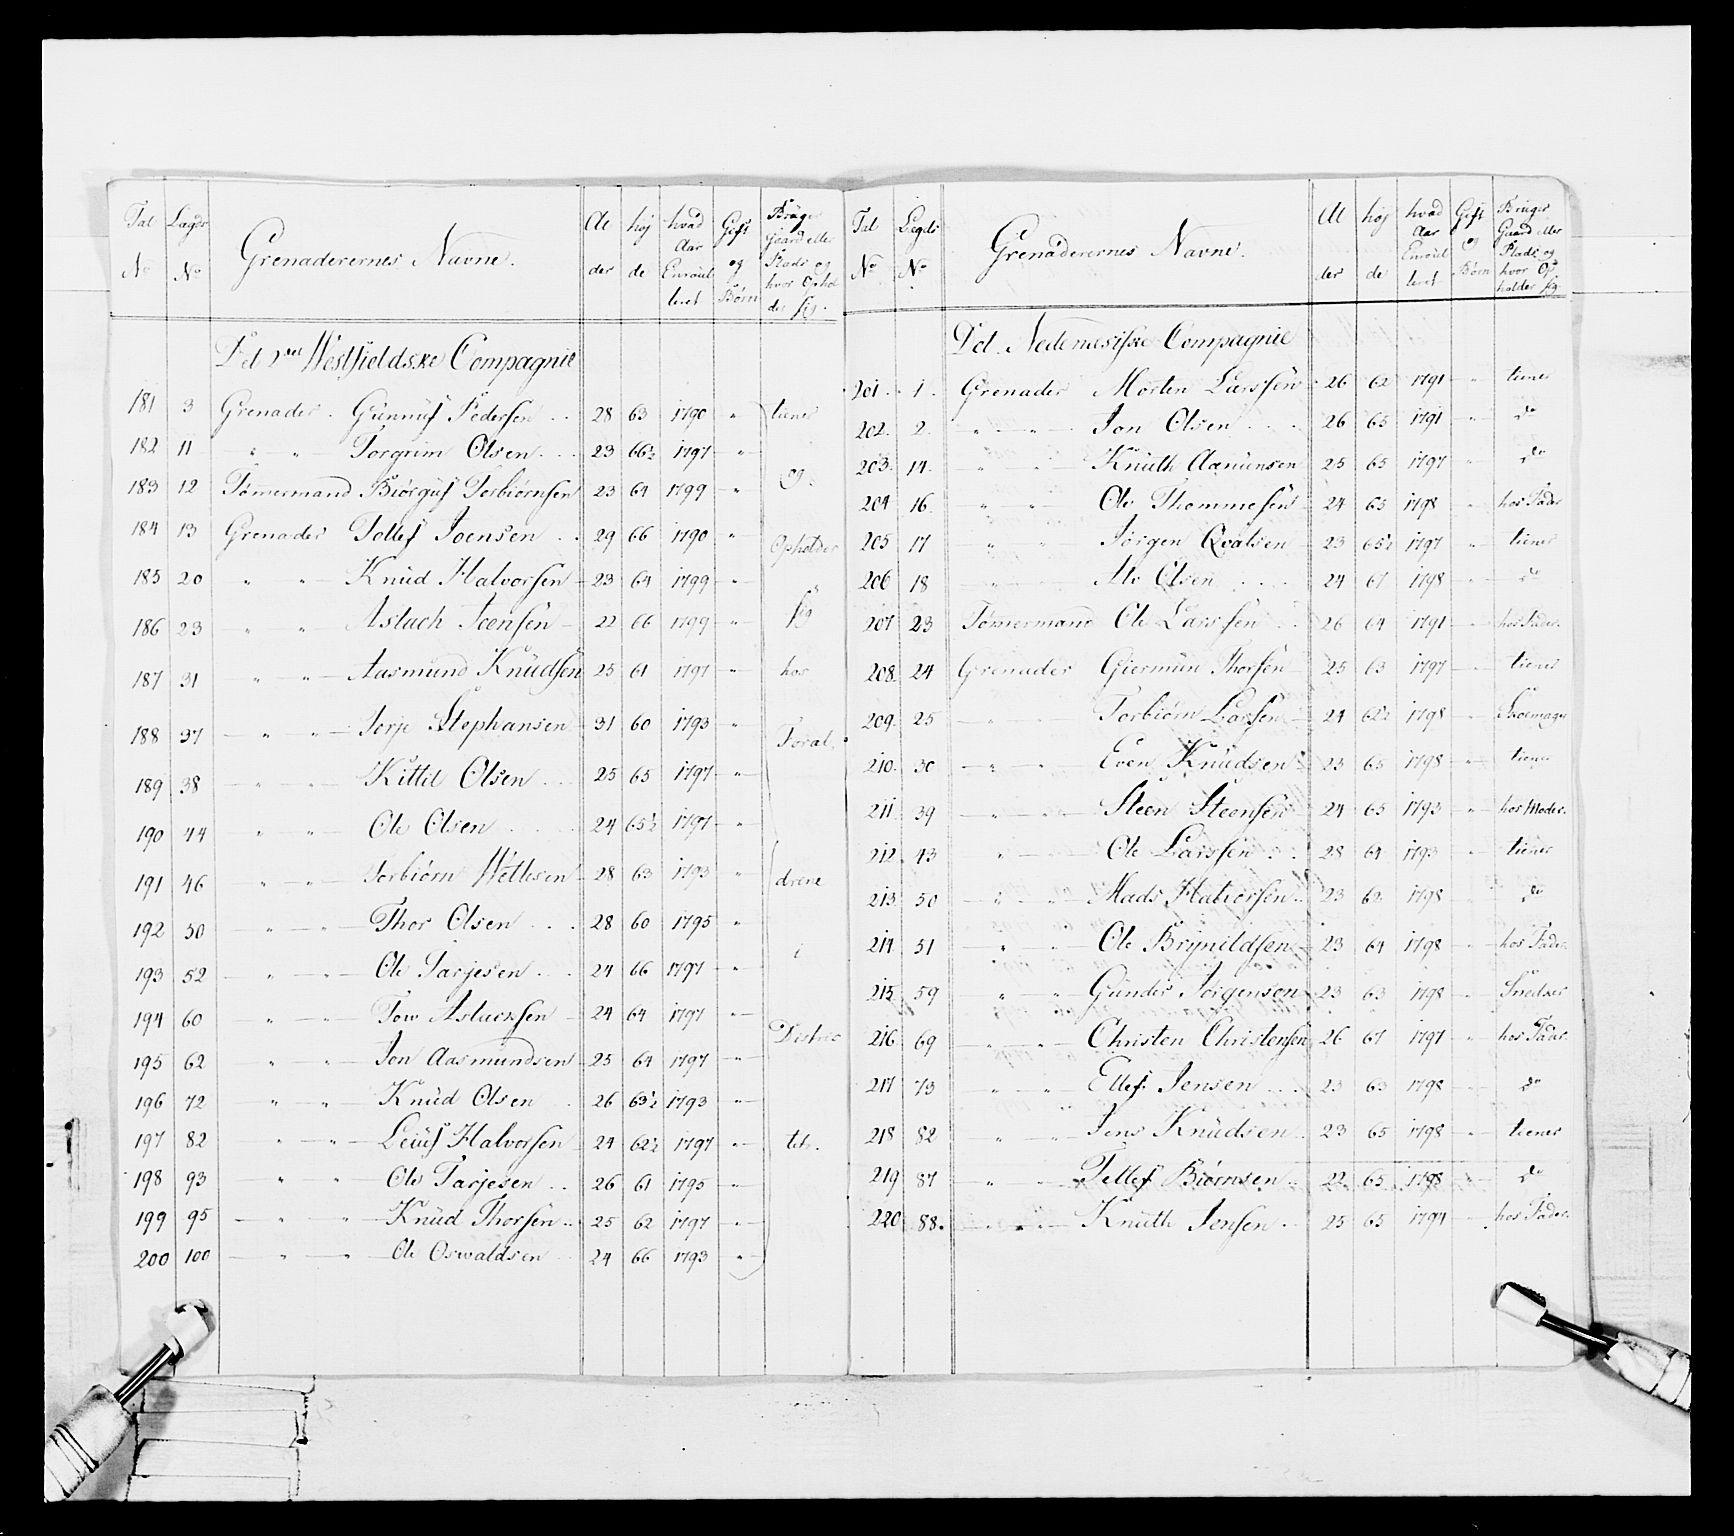 Tal No | Lægds No | Grenaderernes Navne. | Alder | høj de | hvad Aar Enroulleret | Gift og Børn | Bruger Gaard eller Plads og hvor Ophol der sig.
Det 2det Westfieldske Compagnie
181 3 Grenader. Gunnuf Pedersen 28 63 1790 " tiener
182 11 " " Torgrim Olsen 23 66½ 1797 "
183 12 Tømermand Biørguf Torbiørnsen 23 64 1799 " og
184 13 Grenader Tollef Joensen 29 66 1790 " Opholder
185 20 " " Knud Halvorsen 23 64 1799 "
186 23 " " Aslach Joensen 22 66 1799 " sig
187 31 " " Aasmund Knudsen 25 61 1797 " hos
188 37 " " Terje Stephansen 31 60 1793 " Foræl
189 38 " " Kittil Olsen 25 65 1797 "
190 44 " " Ole Olsen 24 65½ 1797 "
191 46 " " Torbiørn Wetlesen 28 63 1793 " drene
192 50 " " Thor Olsen 28 60 1795 "
193 52 " " Ole Tarjesen 24 66 1797 " i
194 60 " " Tow Aslacksen 24 64 1797 "
195 62 " " Jon Aasmundsen 25 64 1797 " Distric
196 72 " " Knud Olsen 26 63½ 1793 "
197 82 " " Leiuf Halvorsen 24 62½ 1797 " tet.
198 93 " " Ole Tarjesen 26 61 1795 "
199 95 " " Knud Thorsen 25 62 1797 "
200 100 " " Ole Oswaldsen 24 66 1793 "
Tal No | Legds No | Grenaderernes Navne. | Alder | høj de | hvad Aar Enroulleret | Gift og Børn | Bruger Gaard eller Plads og hvor Op holder sig.
Det Nedenæsiske Compagnie
201. 1. Grenader Morten Larssen 26 62 1791 " tiener
202. 2. " " Jon Olsen 26 65 1791 " do
203. 14. " " Knuth Aanunsen 25 65 1797 " do
204 16. " " Ole Thommesen 24 65 1798 " hos Fader
205 17 " " Jørgen Qvalsen 23 65½ 1797 " tiener
206 18 " " Ole Olsen 24 67 1798 " do
207 23 Tømermand Ole Larssen 26 64 1791 " hos Fader.
208. 24 Grenader Giermun Thorsen 25 63 1797 " tiener
209. 25 " Torbiørn Larsen 24 62½ 1798 " Skoemager
210. 30 " Even Knudsen 23 65 1798 " tiener
211 39 " " Steen Steensen 24 65 1793 " hos Moder.
212. 43 " " Ole Larssen 28 64 1793 " tiener
213 50 " " Mads Halvorsen 23 62 1798 " do
214 51 " " Ole Brynildsen 23 64 1798 " hos Fader.
215 59 " " Gunder Jørgensen 23 63 1798 " Snedker
216 69 " " Christen Christensen 26 67 1791 " hos Fader.
217 73 " " Ellef Jensen 23 63 1798 " do
218 82 " " Jens Knudsen 23 65 1798 " tiener
219 87 " " Tellef Biørnsen 22 65 1798 " do
220 88. " " Knuth Jensen 25 65 1794 " hos Fader.